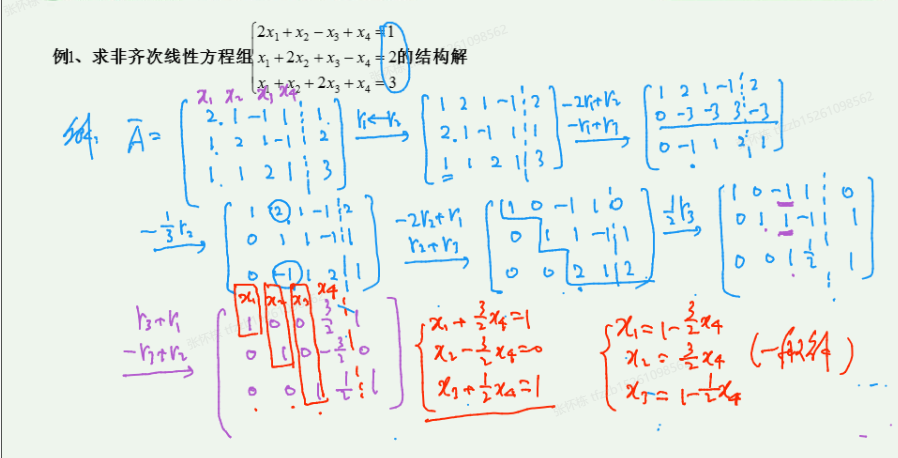 例1、求非齐次线性方程组 {2x₁ + x₂ − x₃ + x₄ = 1
x₁ + 2x₂ + x₃ − x₄ = 2 的结构解
x₁ + x₂ + 2x₃ + x₄ = 3
x₁ x₂ x₃ x₄
解: Ā = (2 1 −1 1 ┆ 1
1 2 1 −1 ┆ 2
1 1 2 1 ┆ 3)
r₁↔r₂
(1 2 1 −1 ┆ 2
2 1 −1 1 ┆ 1
1 1 2 1 ┆ 3)
−2r₁+r₂
−r₁+r₃
(1 2 1 −1 ┆ 2
0 −3 −3 3 ┆ −3
0 −1 1 2 ┆ 1)
−1/3 r₂
(1 2 1 −1 ┆ 2
0 1 1 −1 ┆ 1
0 −1 1 2 ┆ 1)
−2r₂+r₁
r₂+r₃
(1 0 −1 1 ┆ 0
0 1 1 −1 ┆ 1
0 0 2 1 ┆ 2)
1/2 r₃
(1 0 −1 1 ┆ 0
0 1 1 −1 ┆ 1
0 0 1 1/2 ┆ 1)
r₃+r₁
−r₃+r₂
x₁ x₂ x₃ x₄
(1 0 0 3/2 ┆ 1
0 1 0 −3/2 ┆ 0
0 0 1 1/2 ┆ 1)
{x₁ + 3/2 x₄ = 1
x₂ − 3/2 x₄ = 0
x₃ + 1/2 x₄ = 1
{x₁ = 1 − 3/2 x₄
x₂ = 3/2 x₄
x₃ = 1 − 1/2 x₄
(一般解)